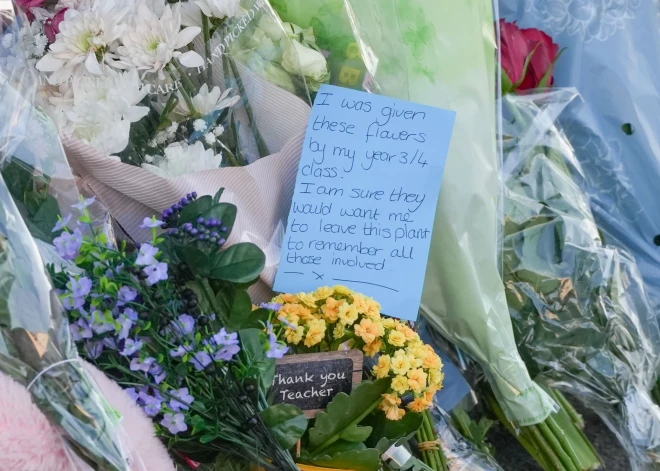 I was given
these flowers
by my year 3/4
class.
I am sure they
would want me
to leave this plant
to remember all
those involved
x
Thank you
Teacher